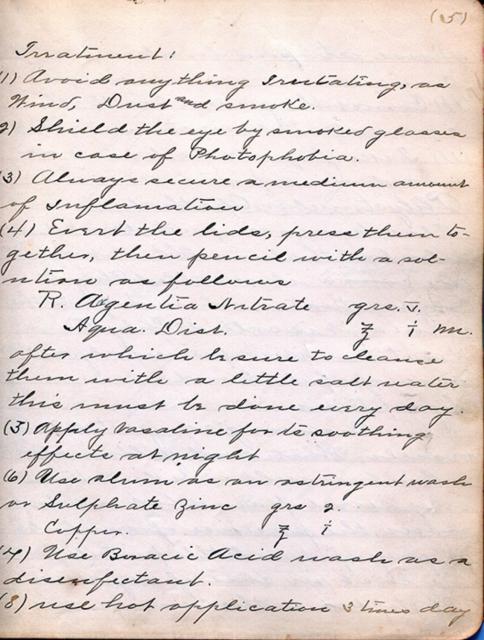 (25)
Treatment:
1) Avoid anything Irritating, as
Wind, Dust and smoke.
2) Shield the eye by smoked glasses
in case of Photophobia.
(3) Always secure a medium amount
of Inflamation
(4) Evert the lids, press them to-
gether, then pencil with a sol-
ution as follows
R. Argentia Nitrate grs. v.
Aqua. Dist. ʒ i M.
after which be sure to cleanse
them with a little salt water
this must be done every day.
(5) Apply Vasaline for its soothing
effects at night
(6) Use alum as an astringent wash
or Sulphate Zinc grs 2
Copper. ʒ i
(7) Use Boracic Acid wash as a
disenfectant.
(8) use hot application 3 times day